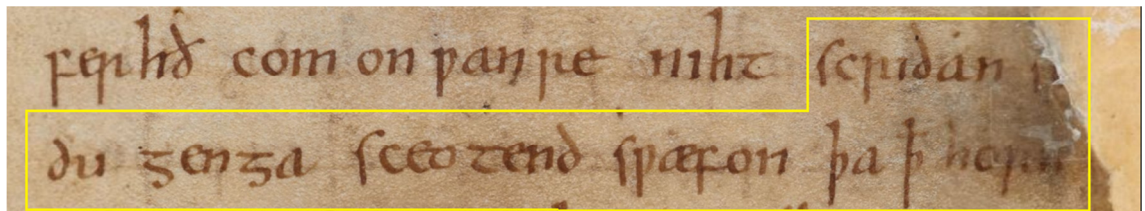 ferhð com on ƿanre niht scriðan
du genga sceotend sƿæfon þa ꝥ horn